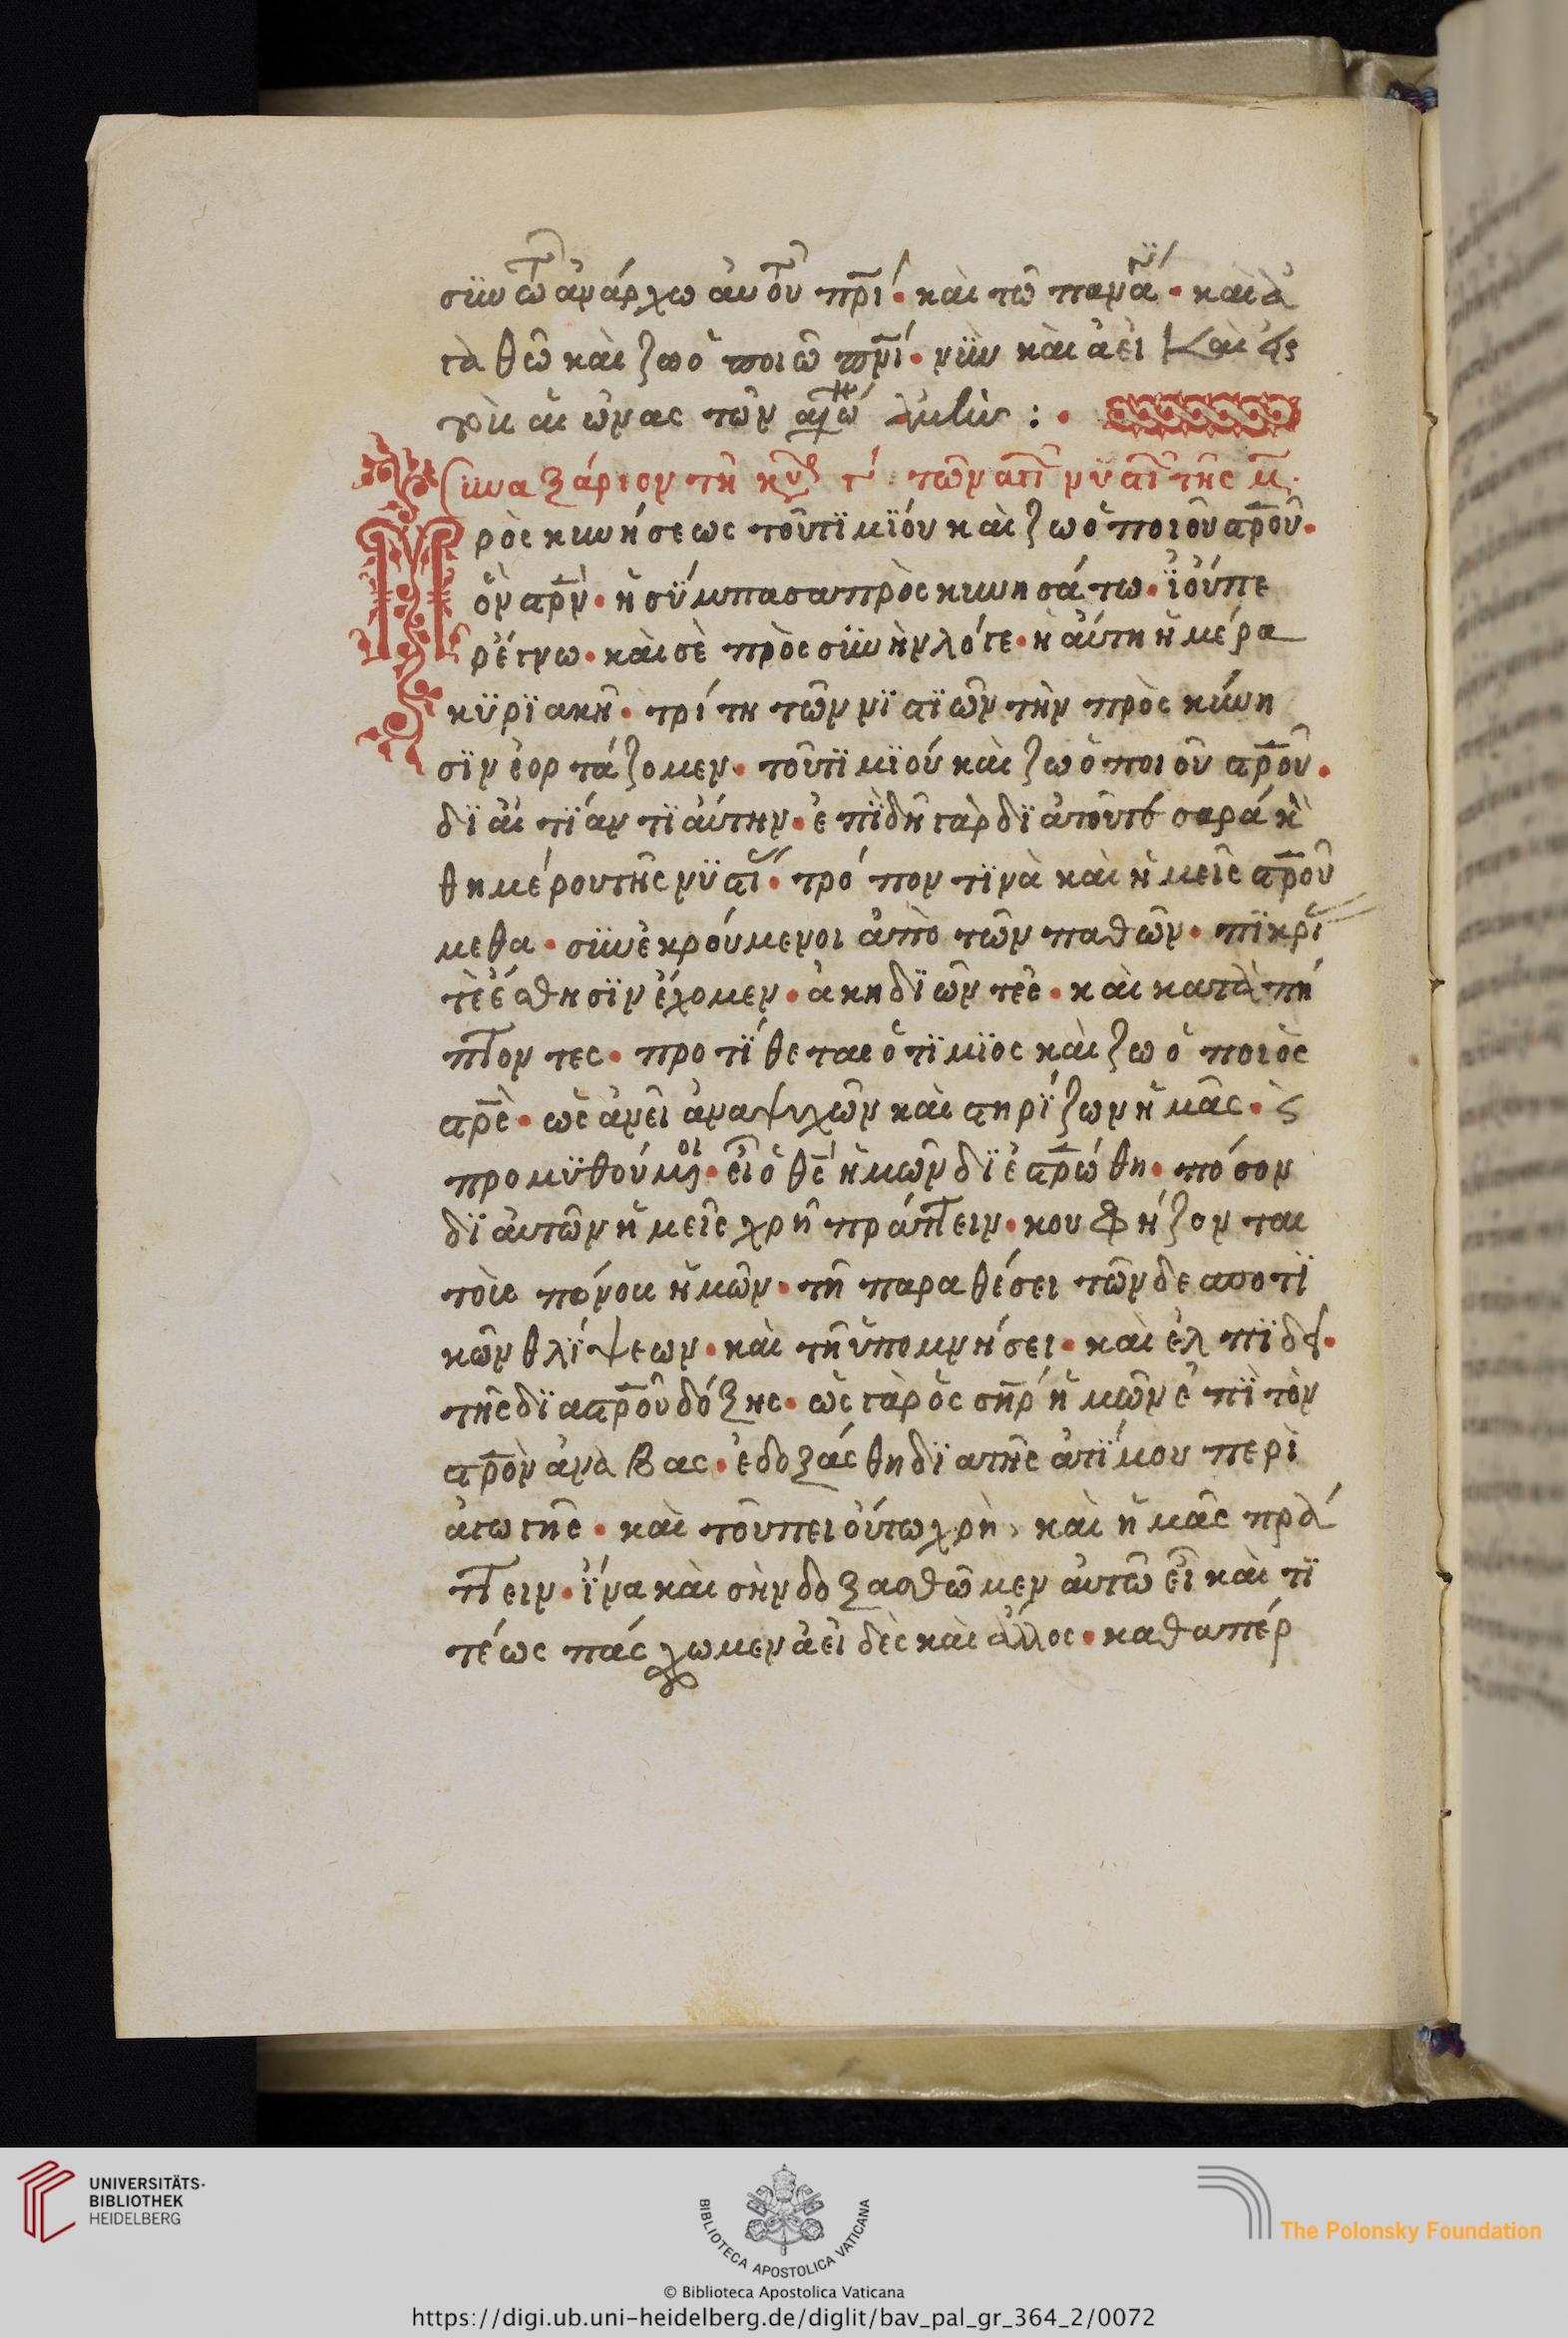 σϋν τῶ ἀνάρχω ἀυτοῦ πρ̅ί· καὶ τῶ παναγ̅ί· καὶ ἀ
γὰ θῶ καὶ ζωὁ ποιῶ πν̅ί· νϋν καὶ ἀεὶ καὶ εἰς
τοὺ αι ὠνας τῶν αἰώ ἀμὴν :·
Σϋναξάριον τῆ κυ γ τῶν ἁγί νϋστῆς μ̅·
Πρὸς κυνήσεως τοῦτϊμϊόυ καὶ ζωὁποιοῦ στρ̅οῦ·
ὃν στρ̅ν· ἡ σϋμπασα πρὸς κυνησάτω· ϊὀύπε
ρἐ γνω· καὶ σὲ πρὸς σϋνὴνλότε· ἡ ἀύτη ἡμέρα
κϋρϊακῆ· τρίτη τῶν νϊστϊῶν τὴν πρὸς κύνη
σϊν ἑορτάζομεν· τοῦτϊμϊού καὶ ζωὁποιοῦ στρ̅οῦ·
δϊ ἀι τϊάν τϊ ἀύτην· ἐ πϊδῆ γὰρ δϊ ἁ τοῦτεσαρά κὸ
θημέρου τῆς νϋστί· τρόπον τϊνὰ καὶ ἡμεῖς στρ̅οῦ
μεθα· σϋνἐκρούμενοι ἀπὸ τῶν παθῶν· πϊκρϊ
τὲ ἔσθησϊν ἔχομεν· ἀκηδϊῶν τεἒ· καὶ κατὰ πή
πτον τες· προτΐθεται ὁ τϊμϊος καὶ ζωὁ ποιὸς
στρ̅ὲ· ὡς ἀνεῖ ἀναψυχῶν καὶ στηρΐζων ἡμᾶς· ὲς
προμϋθούμενοι· εἶ ὁ θς̅ ἡμῶν δϊ ἐ στρ̅ώθη· πόσον
δϊ ἀυτῶν ἡμεῖς χρῆ πράττειν· κουφήζονται
τοῖς πόνοις ἡμῶν· τῆ παραθέσει τῶν δεσποτϊ
κῶν θλΐψεων· καὶ τῆ ὑπομνήσει· καὶ ἐλ πϊδι·
τῆς δϊ αστρ̅οῦ δόξης· ὡς γὰρ ὃς σηρ̅ ἡμῶν ἐ πϊ τὸν
στρ̅ὸν ἀνὰ βας· ἐδοξάσθη δϊ α τῆς ἀτΐμου περὶ
ἀγωγῆς· καὶ τοῦπει ὀύτω χρὴ, καὶ ἡμᾶς πρά
ττειν· ΐνα καὶ σὴν δοξασθῶμεν ἀυτῶ εἶ καὶ τϊ
τέως πάσχωμεν ἀεὶ δὲς καὶ ἄλλος· καθαπέρ
UNIVERSITÄTS-
BIBLIOTHEK
HEIDELBERG
BIBLIOTECA APOSTOLICA VATICANA
The Polonsky Foundation
© Biblioteca Apostolica Vaticana
https://digi.ub.uni-heidelberg.de/diglit/bav_pal_gr_364_2/0072